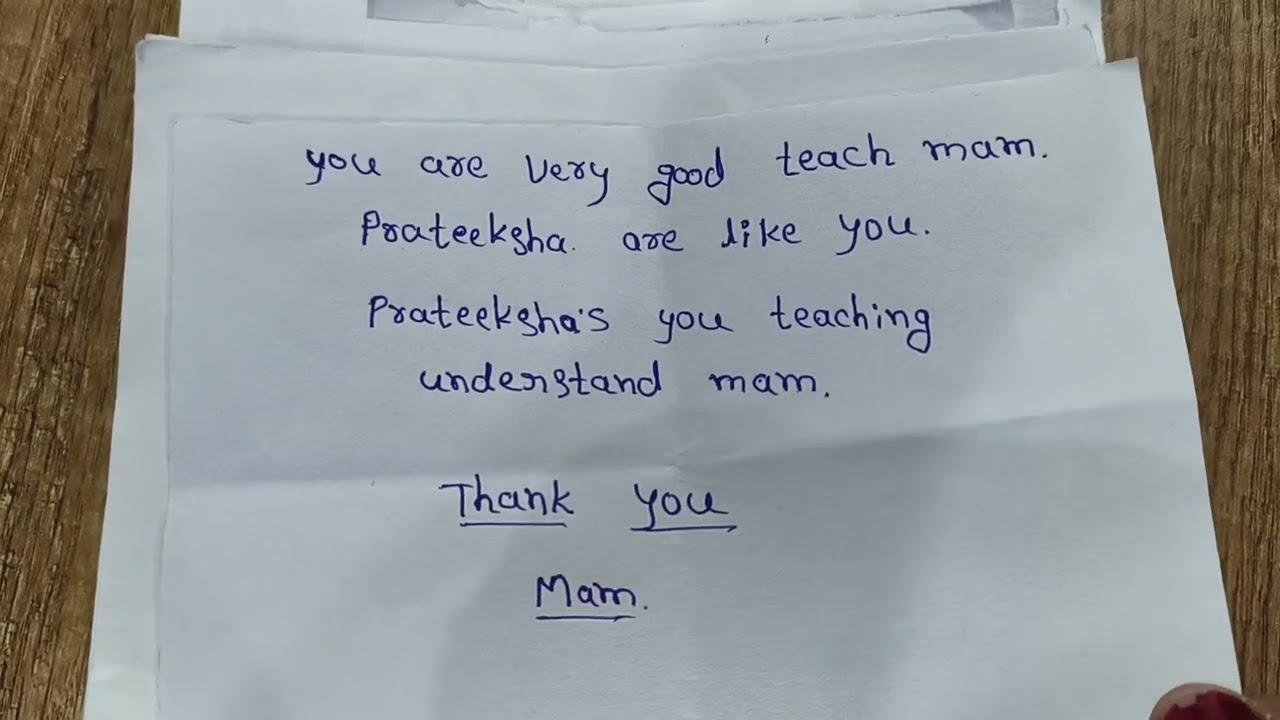 you are very good teach mam.
Prateeksha. are like you.
Prateeksha's you teaching
understand mam.
Thank you
Mam.